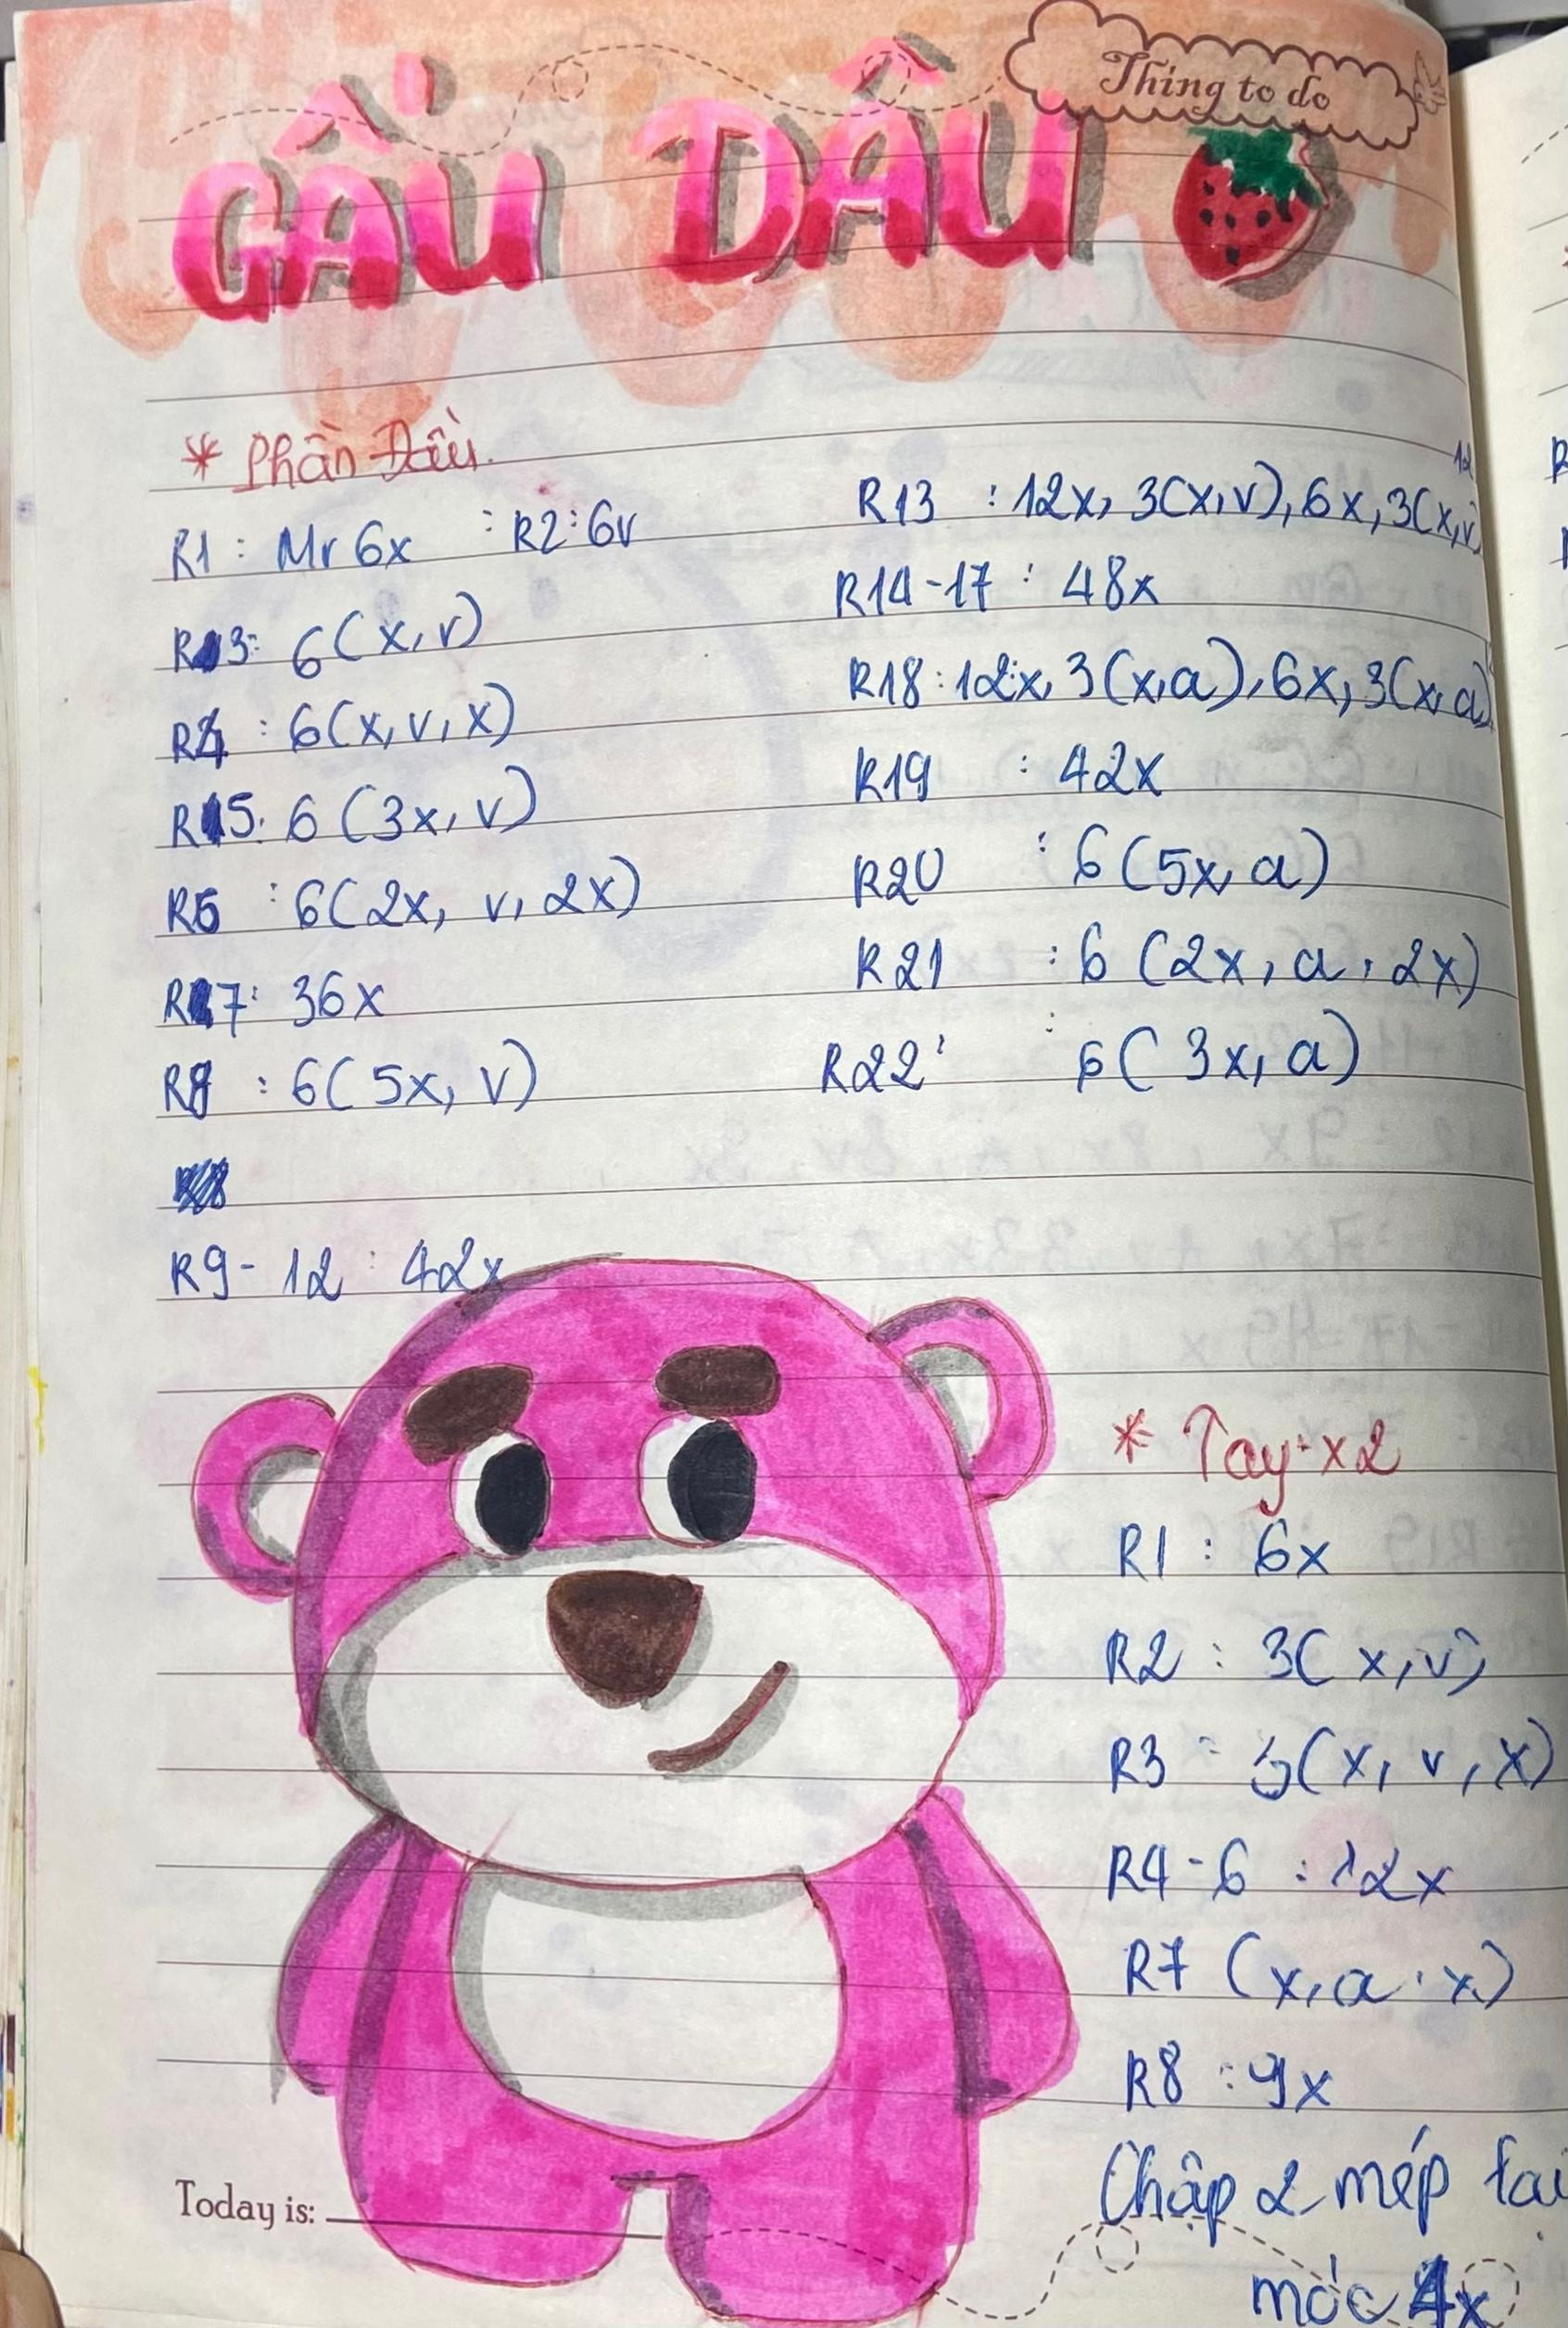 Thing to do
GẤU DÂU
* Phần Đầu.
R1 : Mr 6x : R2 : 6v
R3 : 6(x, v)
R4 : 6(x, v, x)
R5 : 6(3x, v)
R6 : 6(2x, v, 2x)
R7 : 36x
R8 : 6(5x, v)
R9 - 12 : 42x
R13 : 12x, 3(x, v), 6x, 3(x, v)
12
R14 - 17 : 48x
R18 : 12x, 3(x, a), 6x, 3(x, a)
R19 : 42x
R20 : 6(5x, a)
R21 : 6(2x, a, 2x)
R22 : 6(3x, a)
* Tay : x2
R1 : 6x
R2 : 3(x, v)
R3 : 3(x, v, x)
R4 - 6 : 12x
R7 (x, a, x)
R8 : 9x
Chập 2 mép
móc 4x
Today is: